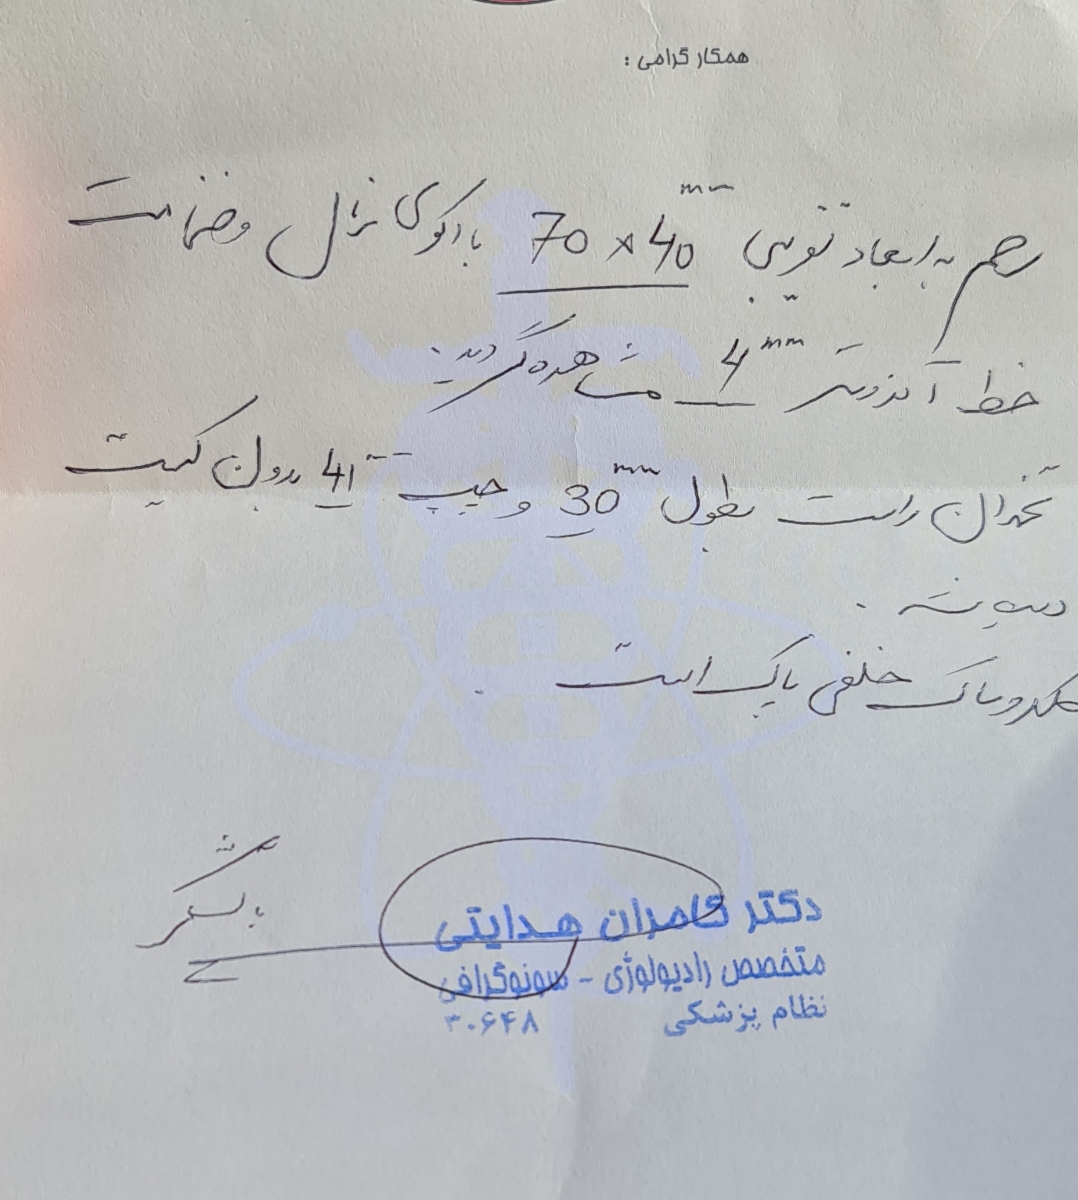 همکار گرامی :
رحم به ابعاد تقریبی 70 x 40 mm با اکوی نرمال و ضخامت
خط آندومتر 4 mm مشاهده گردید.
تخمدان راست بطول 30 mm و چپ 41 mm بدون کیست
دیده شد.
کلدوساک خلفی پاک است.
با تشکر
دکتر کامران هدایتی
متخصص رادیولوژی - سونوگرافی
نظام پزشکی ۳۰۶۴۸